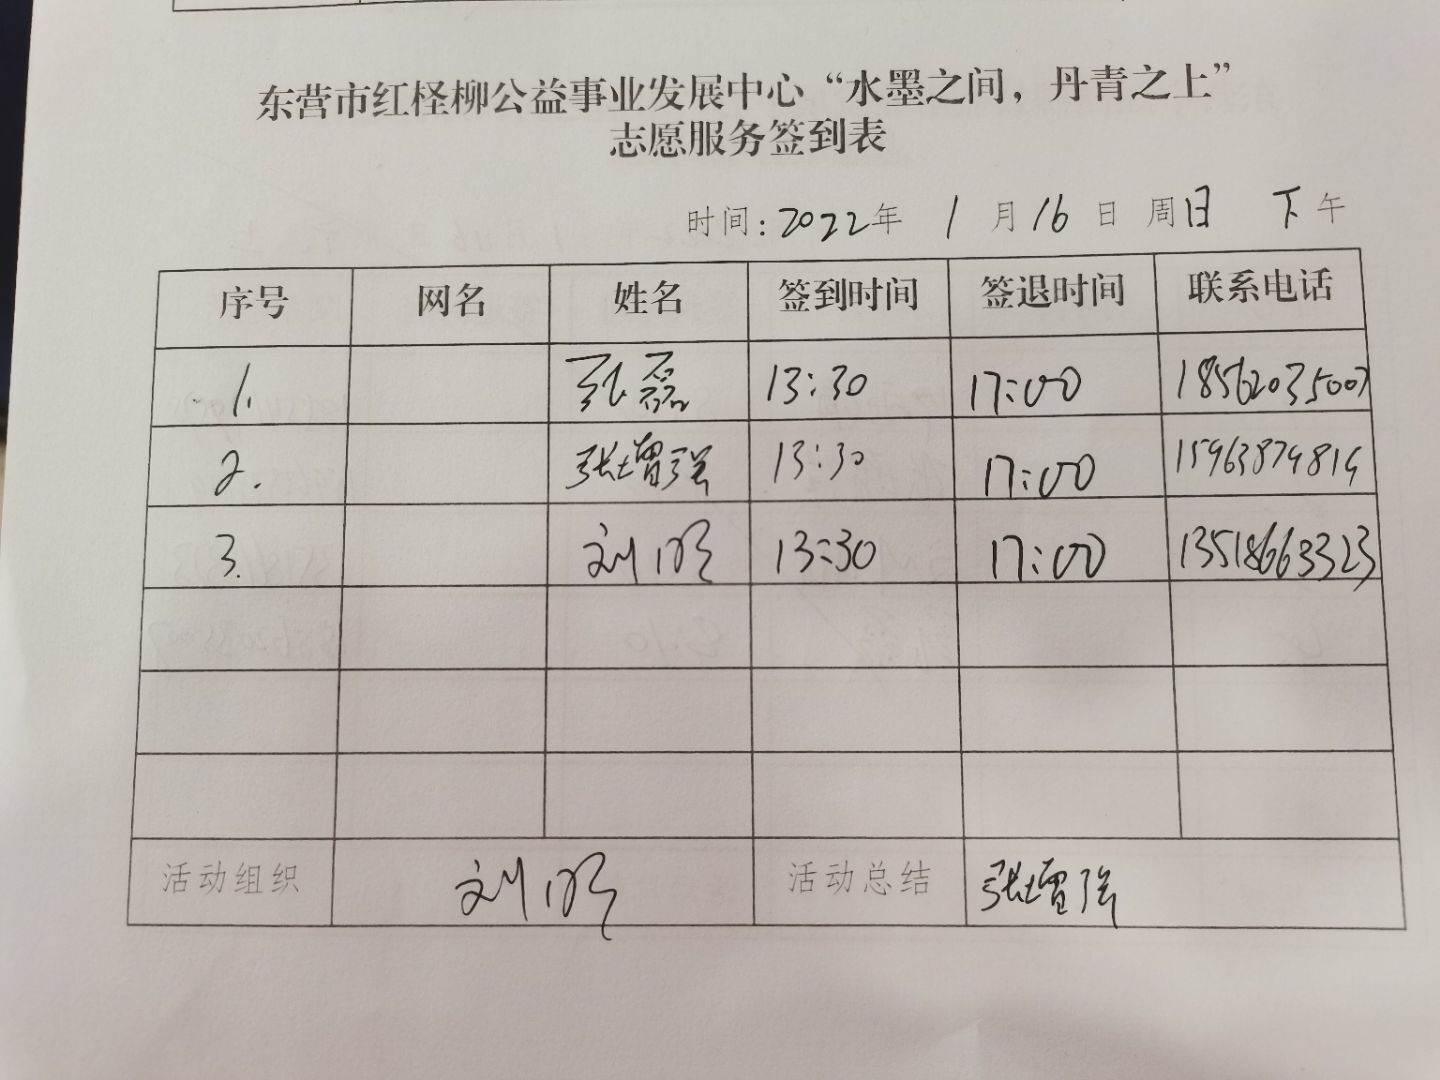 东营市红柽柳公益事业发展中心“水墨之间，丹青之上”
志愿服务签到表
时间：2022年 1 月 16 日 周日 下午
序号 网名 姓名 签到时间 签退时间 联系电话
1. 张磊 13:30 17:00 18562035007
2. 张增强 13:30 17:00 15963879819
3. 刘明 13:30 17:00 13518663323
活动组织 刘明 活动总结 张增强